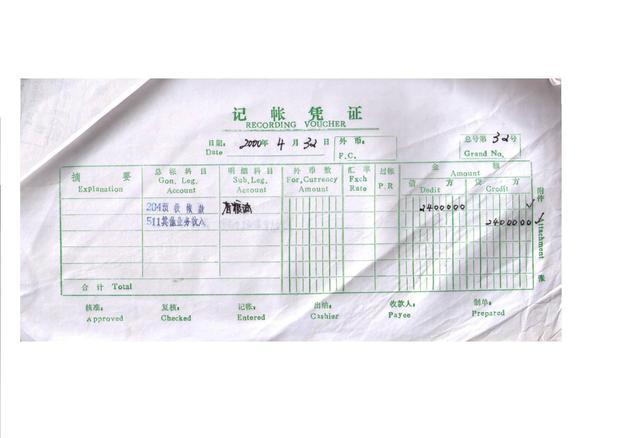 记帐凭证
RECORDING VOUCHER
日期: 2000年 4月 32日 外币: 总号第 32号
Date F.C. Grand No.
摘要 总帐科目 明细科目 外币数 汇率 过帐 金额
Explanation Gen. Leg. Account Sub. Leg. Account For. Currency Amount Exch Rate P.R Amount
借方 贷方
Debit Credit
204应收帐款 2400000
511其他业务收入 2400000
附件
Attachment
张
合计 Total
核准: 复核: 记帐: 出纳: 收款人: 制单:
Approved Checked Entered Cashier Payee Prepared